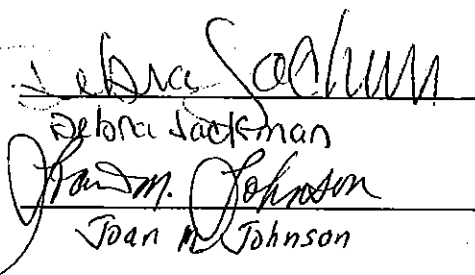 Debra Jackman
Debra Jackman
Joan M. Johnson
Joan M Johnson